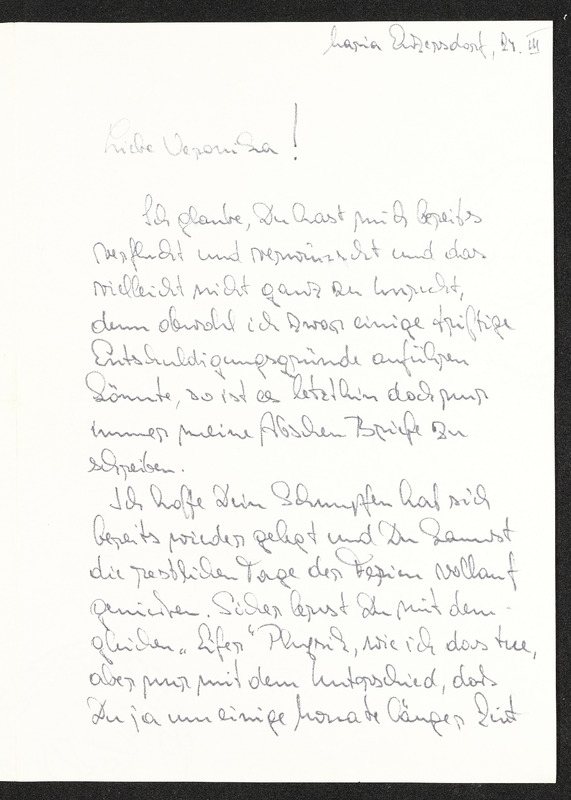 Maria Enzersdorf, 24. III
Liebe Veronika!
Ich glaube, Du hast mich bereits
verflucht und verwünscht und das
vielleicht nicht ganz zu unrecht,
denn obwohl ich zwar einige triftige
Entschuldigungsgründe anführen
könnte, so ist es letzthin doch nur
immer meine Abscheu Briefe zu
schreiben.
Ich hoffe Dein Schnupfen hat sich
bereits wieder gelegt und Du kannst
die restlichen Tage der Ferien vollauf
genießen. Sicher lernst Du mit dem-
gleichen „Eifer“ Physik, wie ich das tue,
aber nur mit dem Unterschied, daß
Du ja um einige Monate länger Zeit